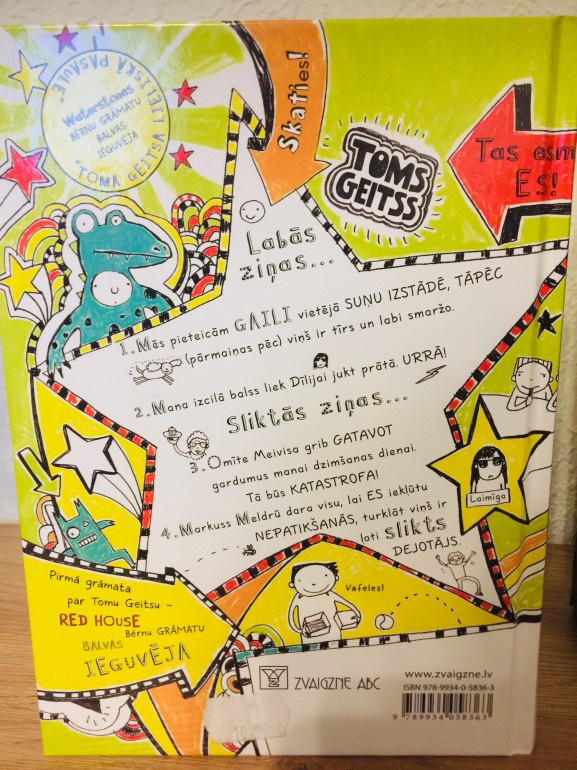 Skaties!
TOMA GEITSA LIELISKĀ PASAULE
Waterstones
BĒRNU GRĀMATU
BALVAS
IEGUVĒJA
TOMS
GEITSS
Tas esm
Es!
Labās
ziņas...
1. Mēs pieteicām GAILI vietējā SUŅU IZSTĀDĒ, TĀPĒC
(pārmaiņas pēc) viņš ir tīrs un labi smaržo.
2. Mana izcilā balss liek Dīlijai jukt prātā. URRĀ!
Sliktās ziņas...
3. Omīte Meivisa grib GATAVOT
gardumus manai dzimšanas dienai.
Tā būs KATASTROFA!
4. Markuss Meldrū dara visu, lai ES iekļūtu
NEPATIKŠANĀS, turklāt viņš ir
ļoti slikts
DEJOTĀJS.
Laimīga
Vafeles!
Pirmā grāmata
par Tomu Geitsu –
RED HOUSE
BĒRNU GRĀMATU
BALVAS
IEGUVĒJA
ZVAIGZNE ABC
www.zvaigzne.lv
ISBN 978-9934-0-5836-3
9 789934 058363